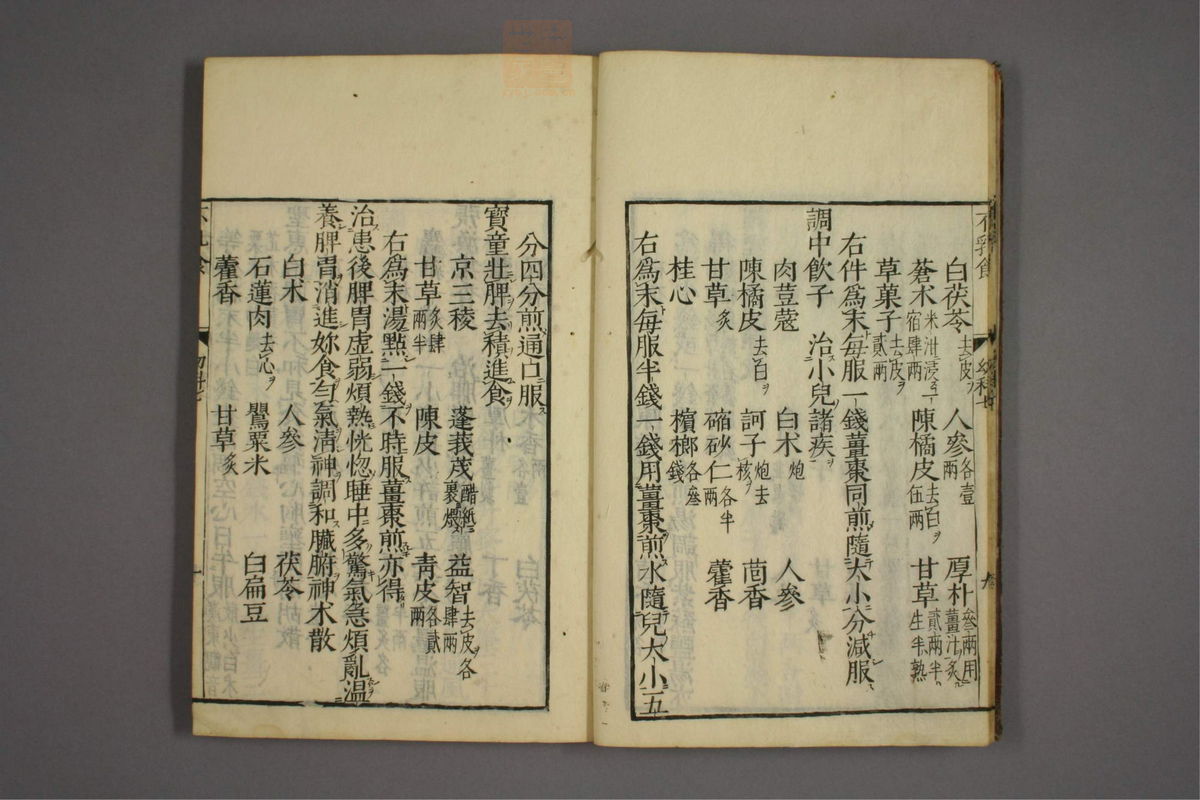 白茯苓去皮 人參各壹兩 厚朴叁兩用薑汁炙
蒼术米泔浸宿肆兩 陳橘皮去白伍兩 甘草貳兩半生半熟
草菓子去皮貳兩
右件爲末每服一錢薑棗同煎隨大小分減服
調中飲子 治小兒諸疾
肉荳蔻 白术炮 人參
陳橘皮去白 訶子炮去核 茴香
甘草炙 縮砂仁各半兩 藿香
桂心 檳榔各叁錢
右爲末每服半錢一錢用薑棗煎水隨兒大小一五
分四分煎通口服
寶童壯脾去積進食
京三稜 蓬莪茂醋紙裹煨 益智去皮各肆兩
甘草炙肆兩半 陳皮 青皮各貳兩
右爲末湯點一錢不時服薑棗煎亦得
治患後脾胃虛弱煩熱恍惚睡中多驚氣急煩亂溫
養脾胃消進妳食勻氣清神調和臟腑神术散
白术 人參 茯苓
石蓮肉去心 罌粟米 白扁豆
藿香 甘草炙